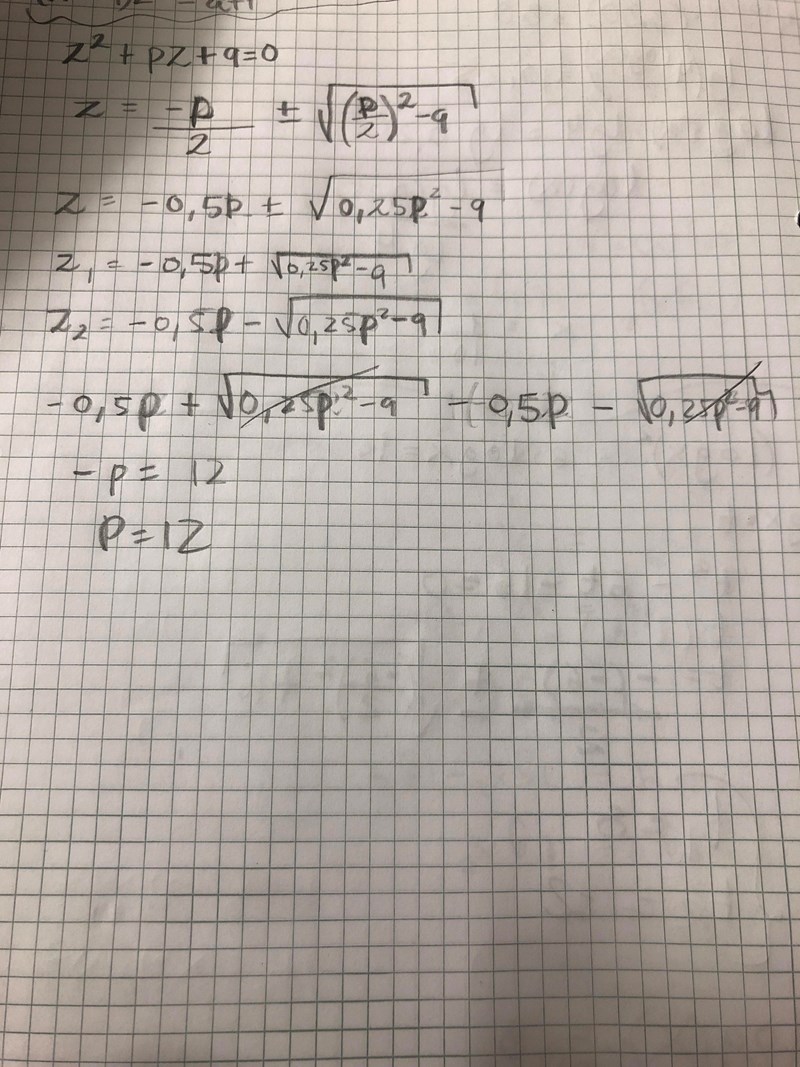 z² + pz + q = 0
z = -p/2 ± √((p/2)² - q)
z = -0,5p ± √(0,25p² - q)
z₁ = -0,5p + √(0,25p² - q)
z₂ = -0,5p - √(0,25p² - q)
-0,5p + √(0,25p² - q) - 0,5p - √(0,25p² - q)
-p = 12
p = 12